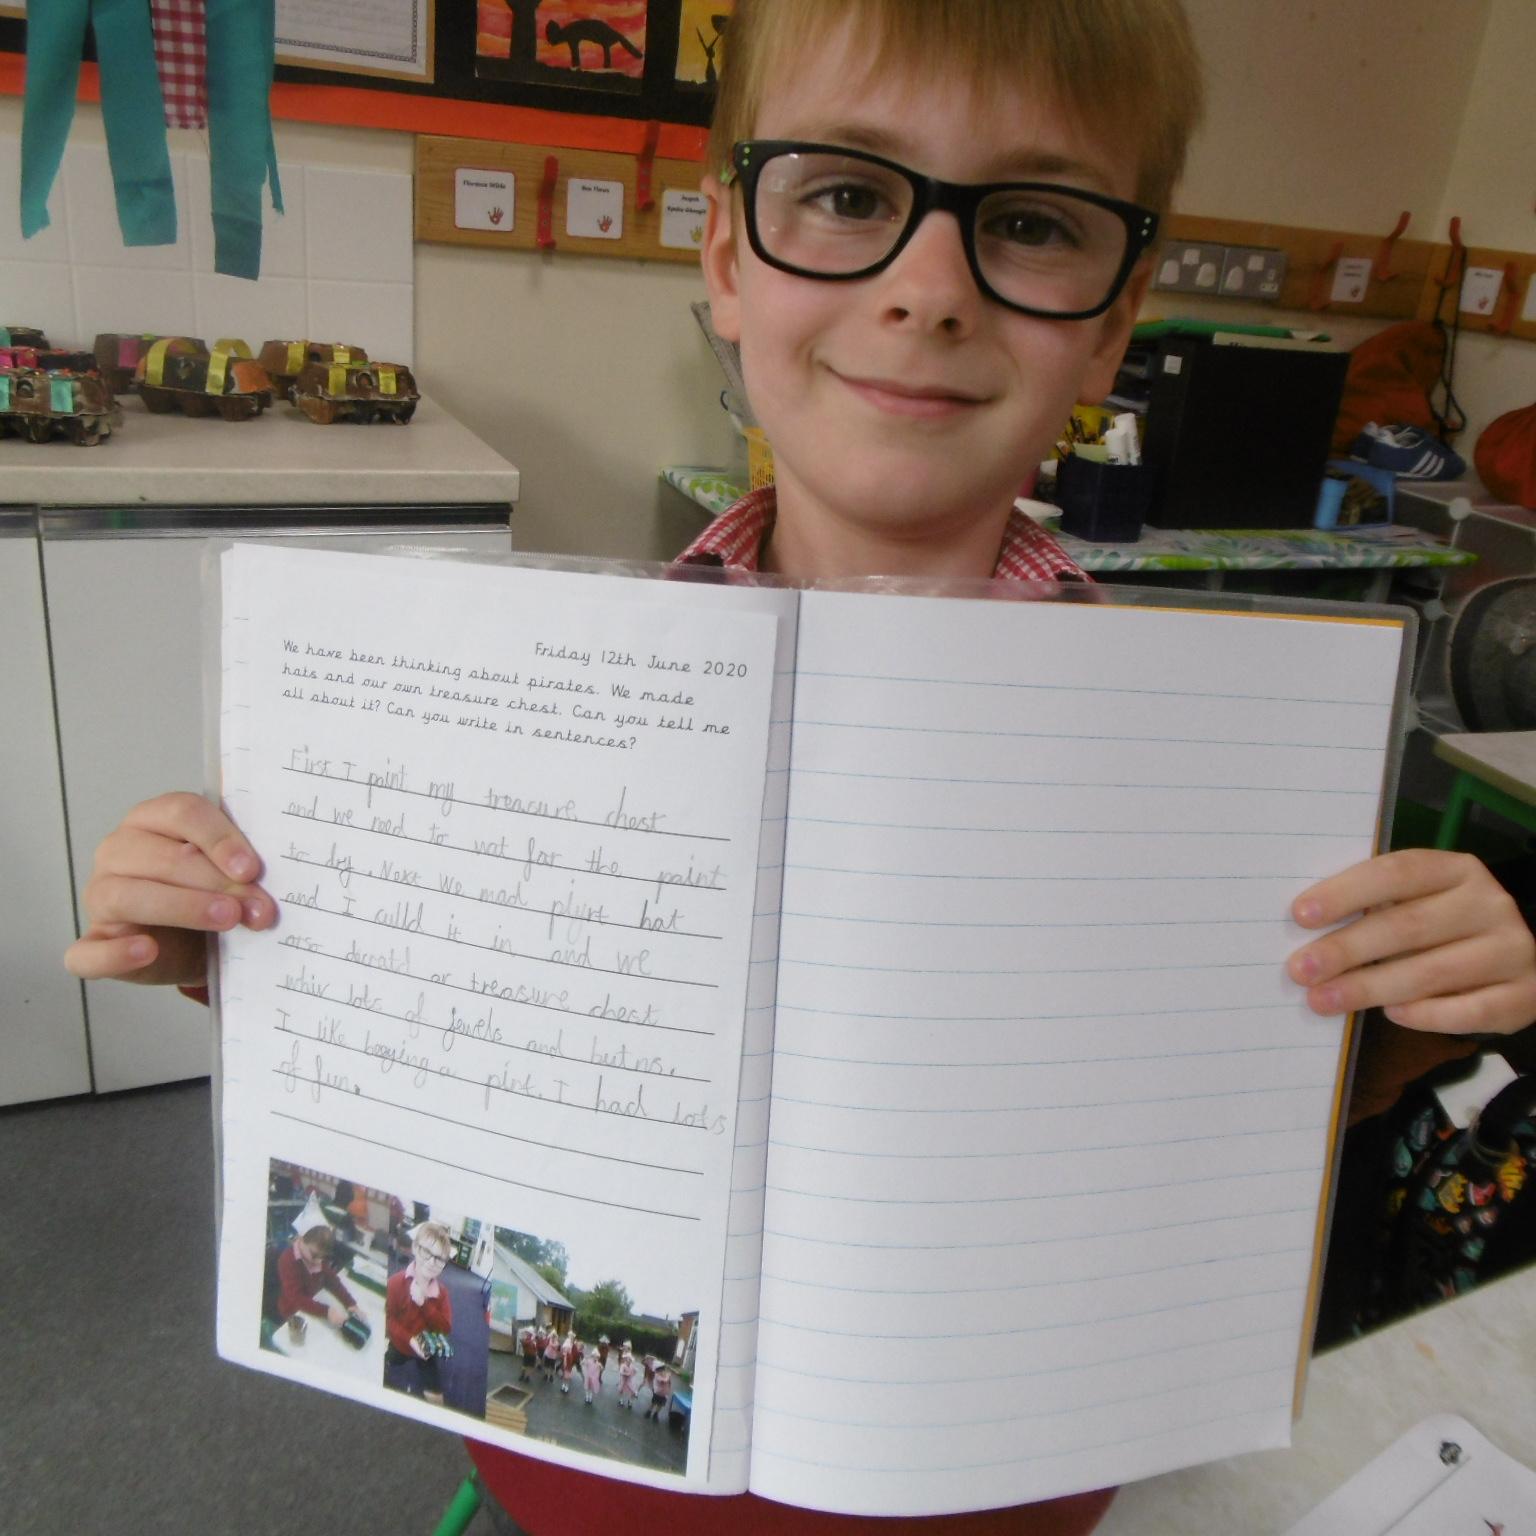 Florence Wilde
Friday 12th June 2020
We have been thinking about pirates. We made
hats and our own treasure chest. Can you tell me
all about it? Can you write in sentences?
First I paint my treasure chest
and we need to wat for the paint
to dry. Next We mad plyrt hat
and I culld it in and we
orso diccratd or treasure chest
whiv lots of jewels and butns.
I like beeying a pirt. I had lots
of fun.